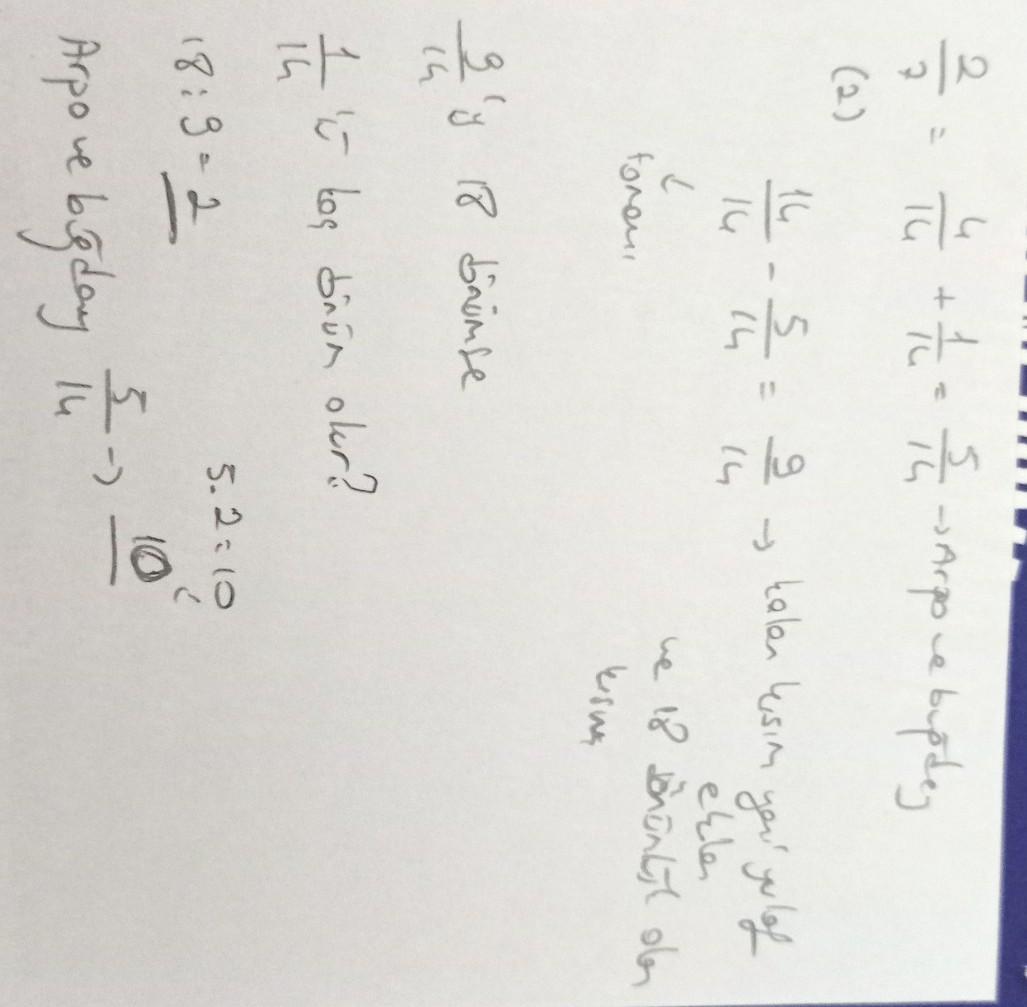 2/7 = 4/14 + 1/14 = 5/14 → Arpa ve buğday
(2)
14/14 - 5/14 = 9/14 → kalan kısım yani yulaf
ekilen
tamamı
ve 18 dönümlük olan
kısım
9/14 'ü 18 dönümse
1/14 'i kaç dönüm olur?
18 : 9 = 2
5.2=10
Arpa ve buğday 5/14 → 10